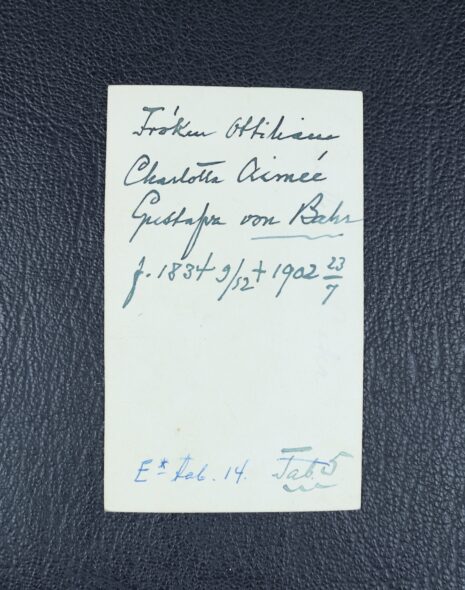 Fröken Ottiliana
Charlotta Aimeé
Gustafva von Bahr
f. 1834 9/12 † 1902 23/7
E* tab. 14. Tab. 5